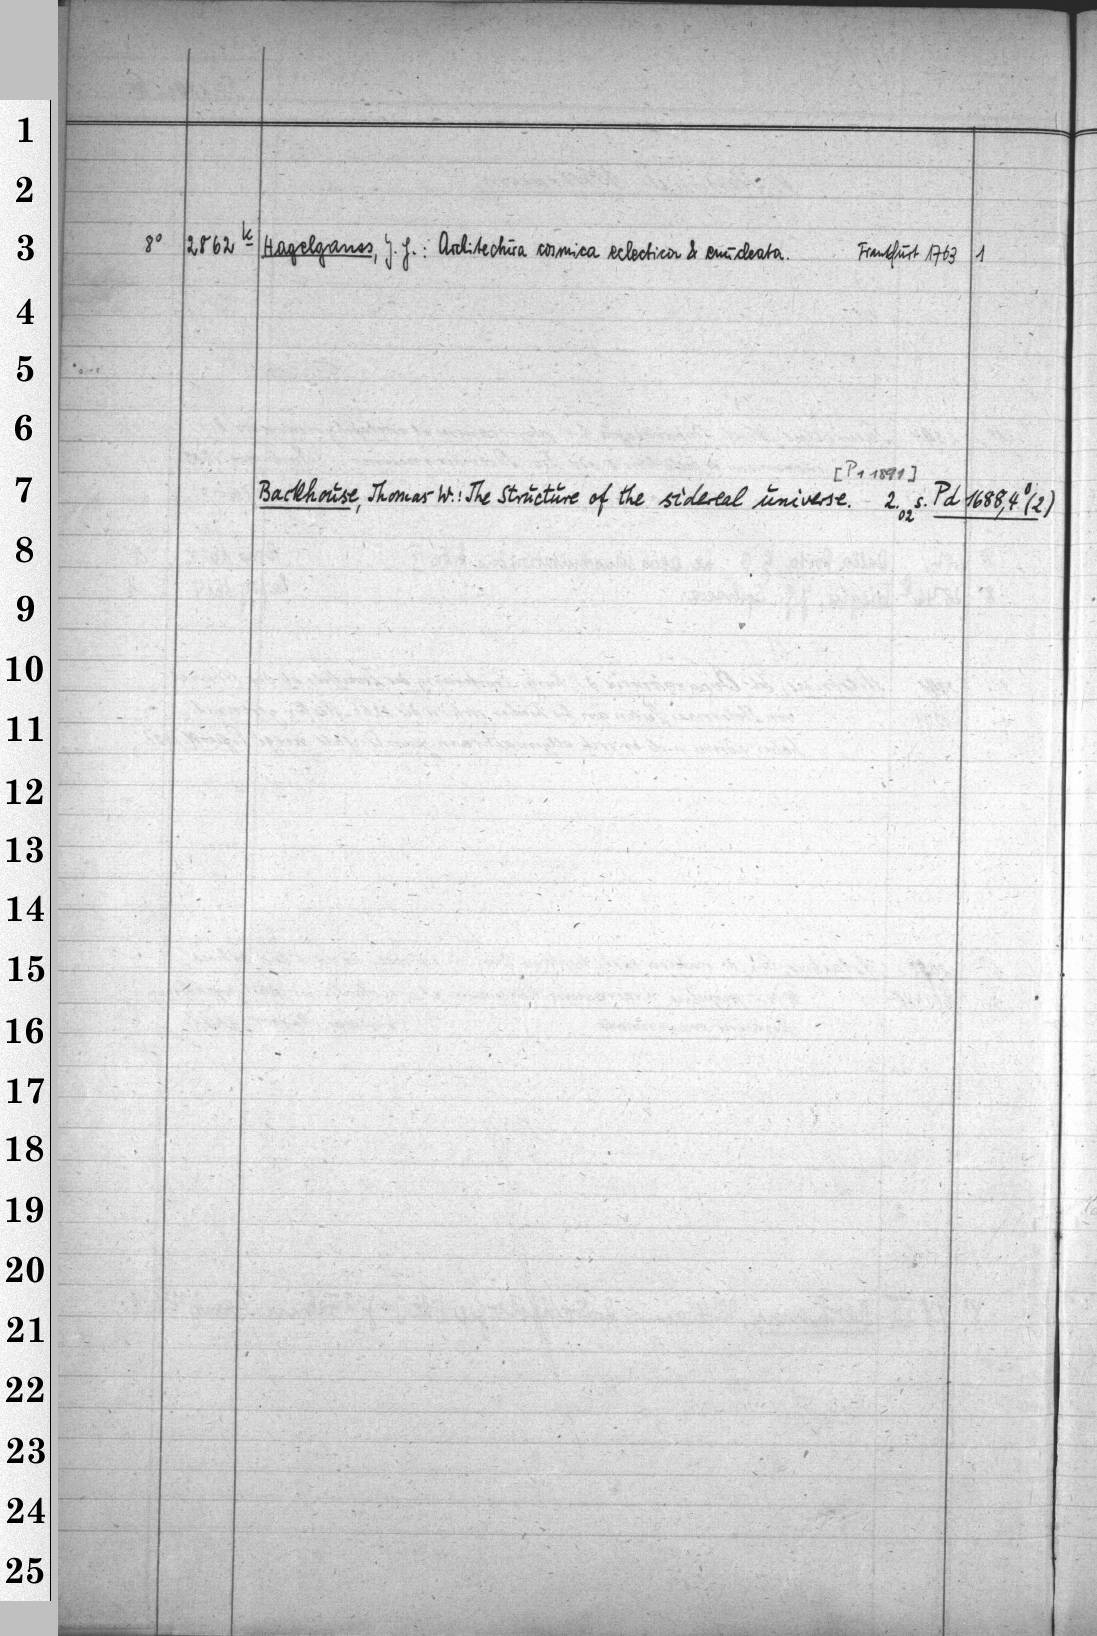 1
2
3
8° 2862 k Hagelganss, J. G.: Architectura cosmica eclectica & enucleata. Frankfurt 1763 1
4
5
6
[P. 1 1891]
7
Backhouse, Thomas W.: The Structure of the sidereal universe. 2. 02 s. Pd 1688, 4° (2)
8
9
10
11
12
13
14
15
16
17
18
19
20
21
22
23
24
25